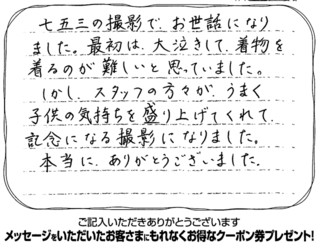 七五三の撮影で、お世話になり
ました。最初は、大泣きして、着物を
着るのが難しいと思っていました。
しかし、スタッフの方々が、うまく
子供の気持ちを盛り上げてくれて、
記念になる撮影になりました。
本当に、ありがとうございました。
ご記入いただきありがとうございます
メッセージをいただいたお客さまにもれなくお得なクーポン券プレゼント!